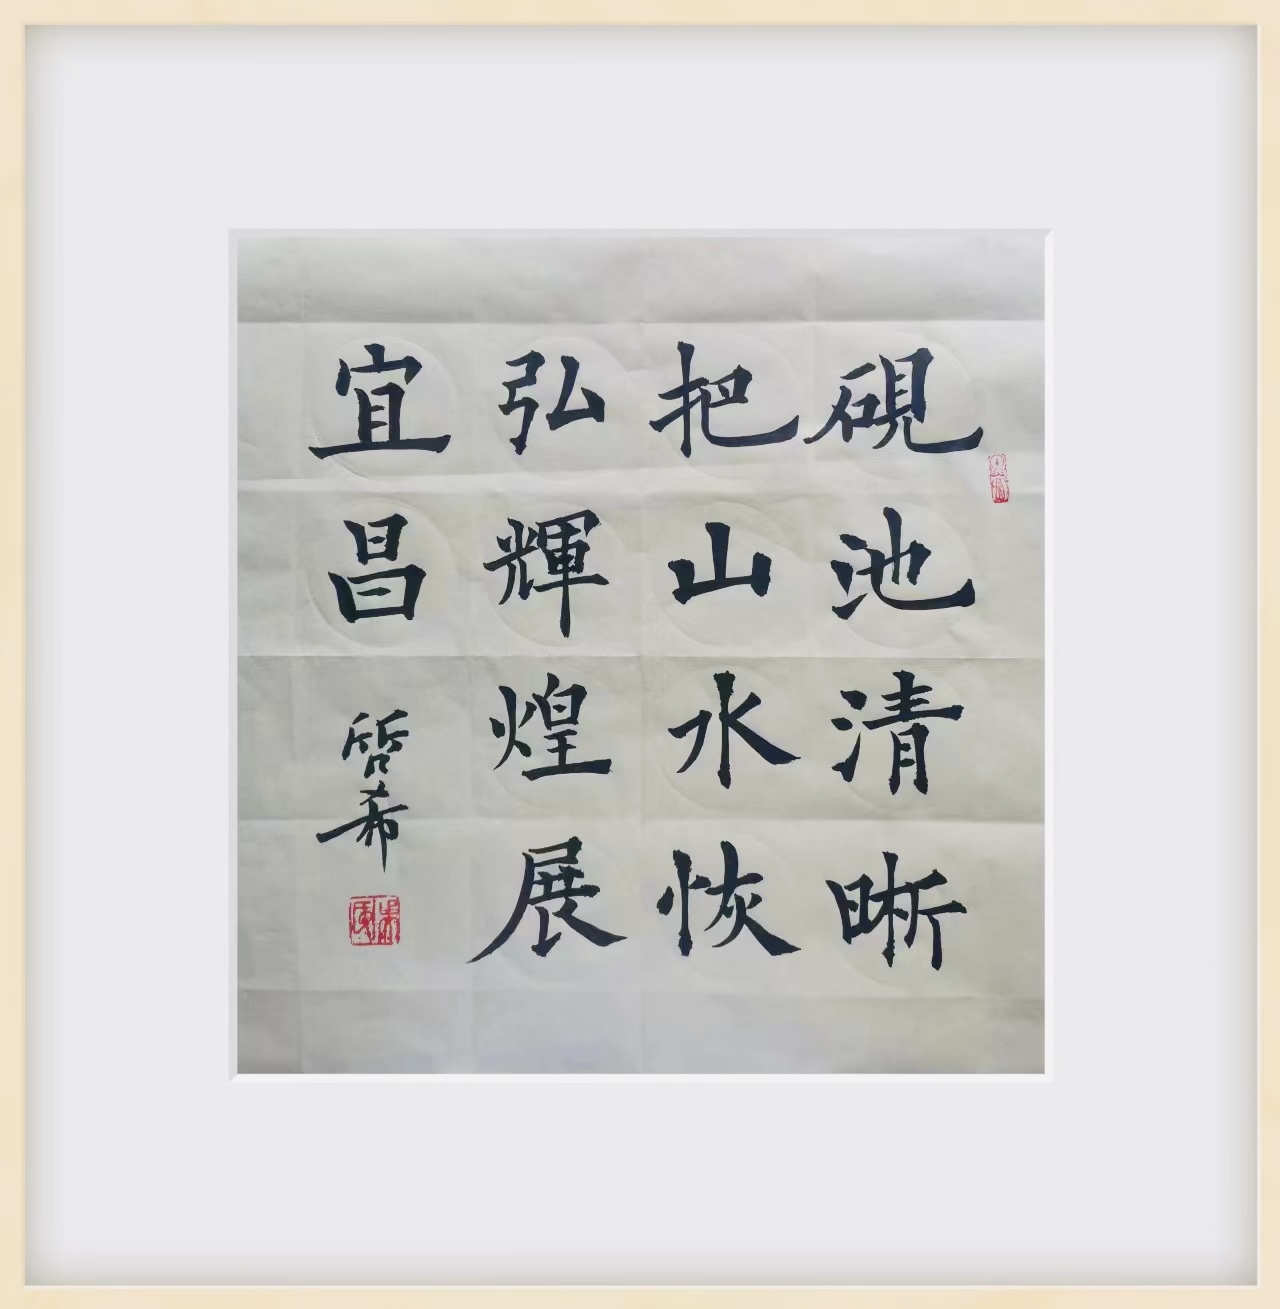 硯池清晰
把山水恢
弘輝煌展
宜昌
啓希